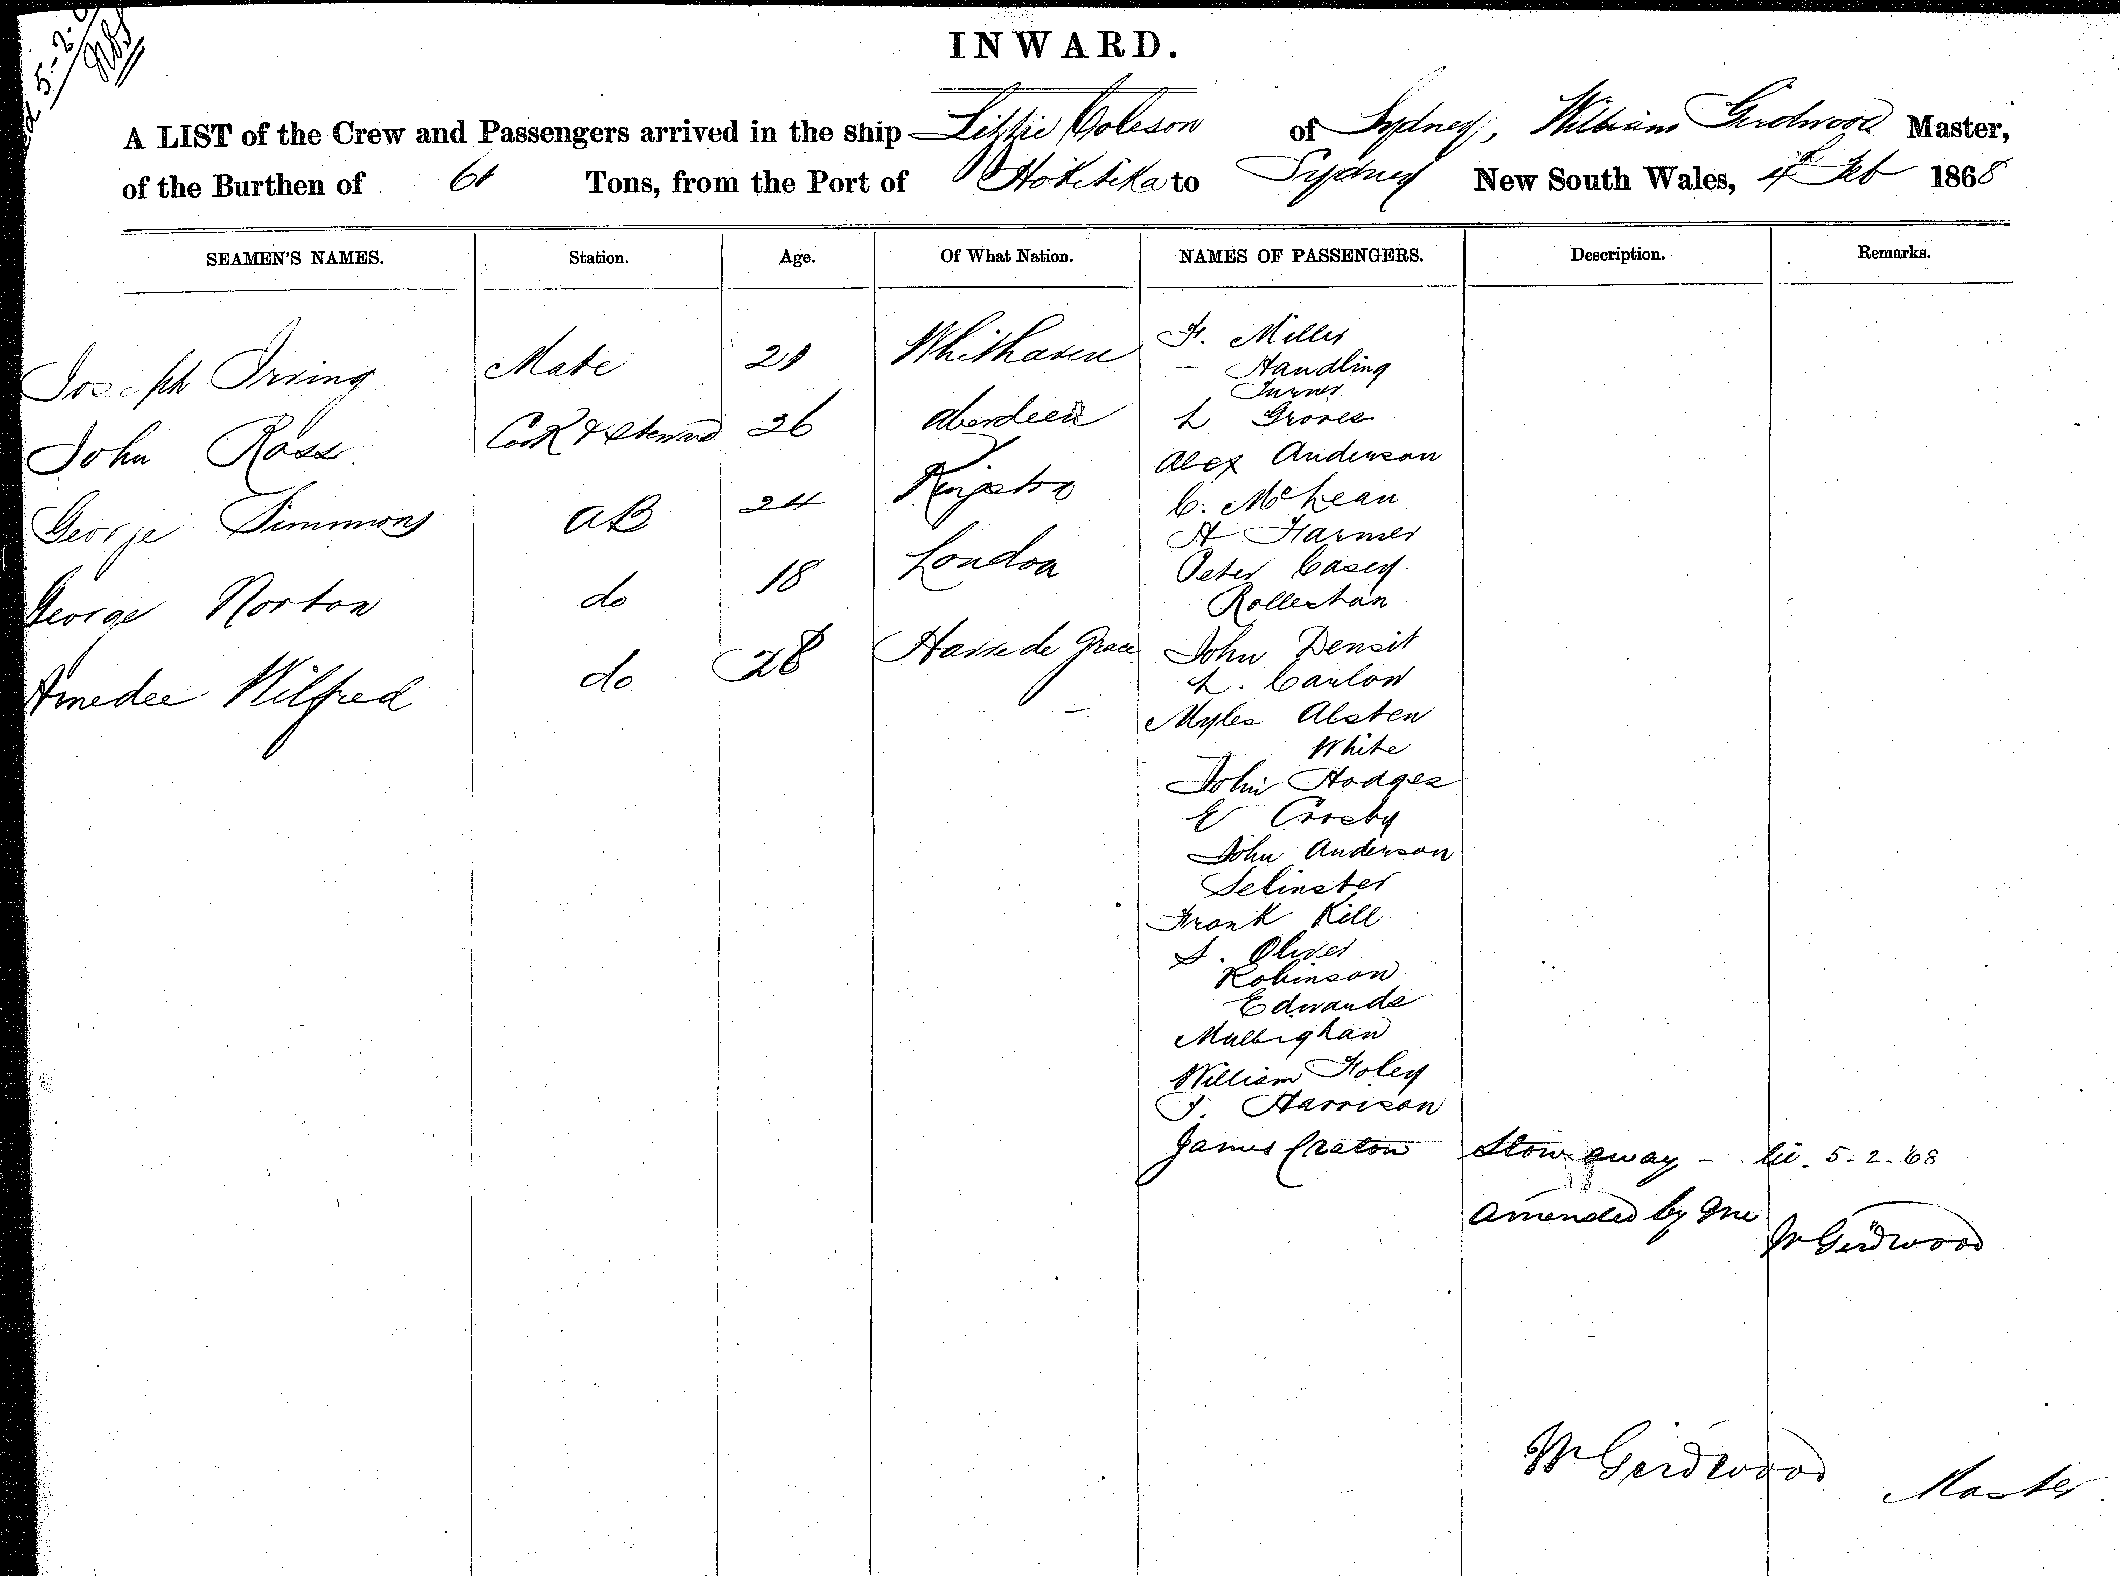 5-2-
INWARD.
A LIST of the Crew and Passengers arrived in the ship Lizzie Coleson of Sydney, William Girdwood Master,
of the Burthen of 61 Tons, from the Port of Hokitika to Sydney New South Wales, 4th Feb 1868
SEAMEN'S NAMES. Station. Age. Of What Nation. NAMES OF PASSENGERS. Description. Remarks.
Joseph Irving Mate 21 Whithaven
John Ross Cook & Steward 26 Aberdeen
George Simmons AB 24 Kingston
George Norton do 18 London
Amedee Wilfred do 28 Havre de Grace
F. Miller
- Handling
Turner
L Groves
Alex Anderson
C. McLean
A Farmer
Peter Casey
Rollestan
John Densit
L. Carlow
Myles Alsten
White
John Hodges
E Crosby
John Anderson
Selinster
Frank Kill
S. Oliver
Robinson
Edwards
Mullighan
William Foley
J. Harrison
James Craton Stow away - 5-2-'68
Amended by me W Girdwood
W Girdwood Master